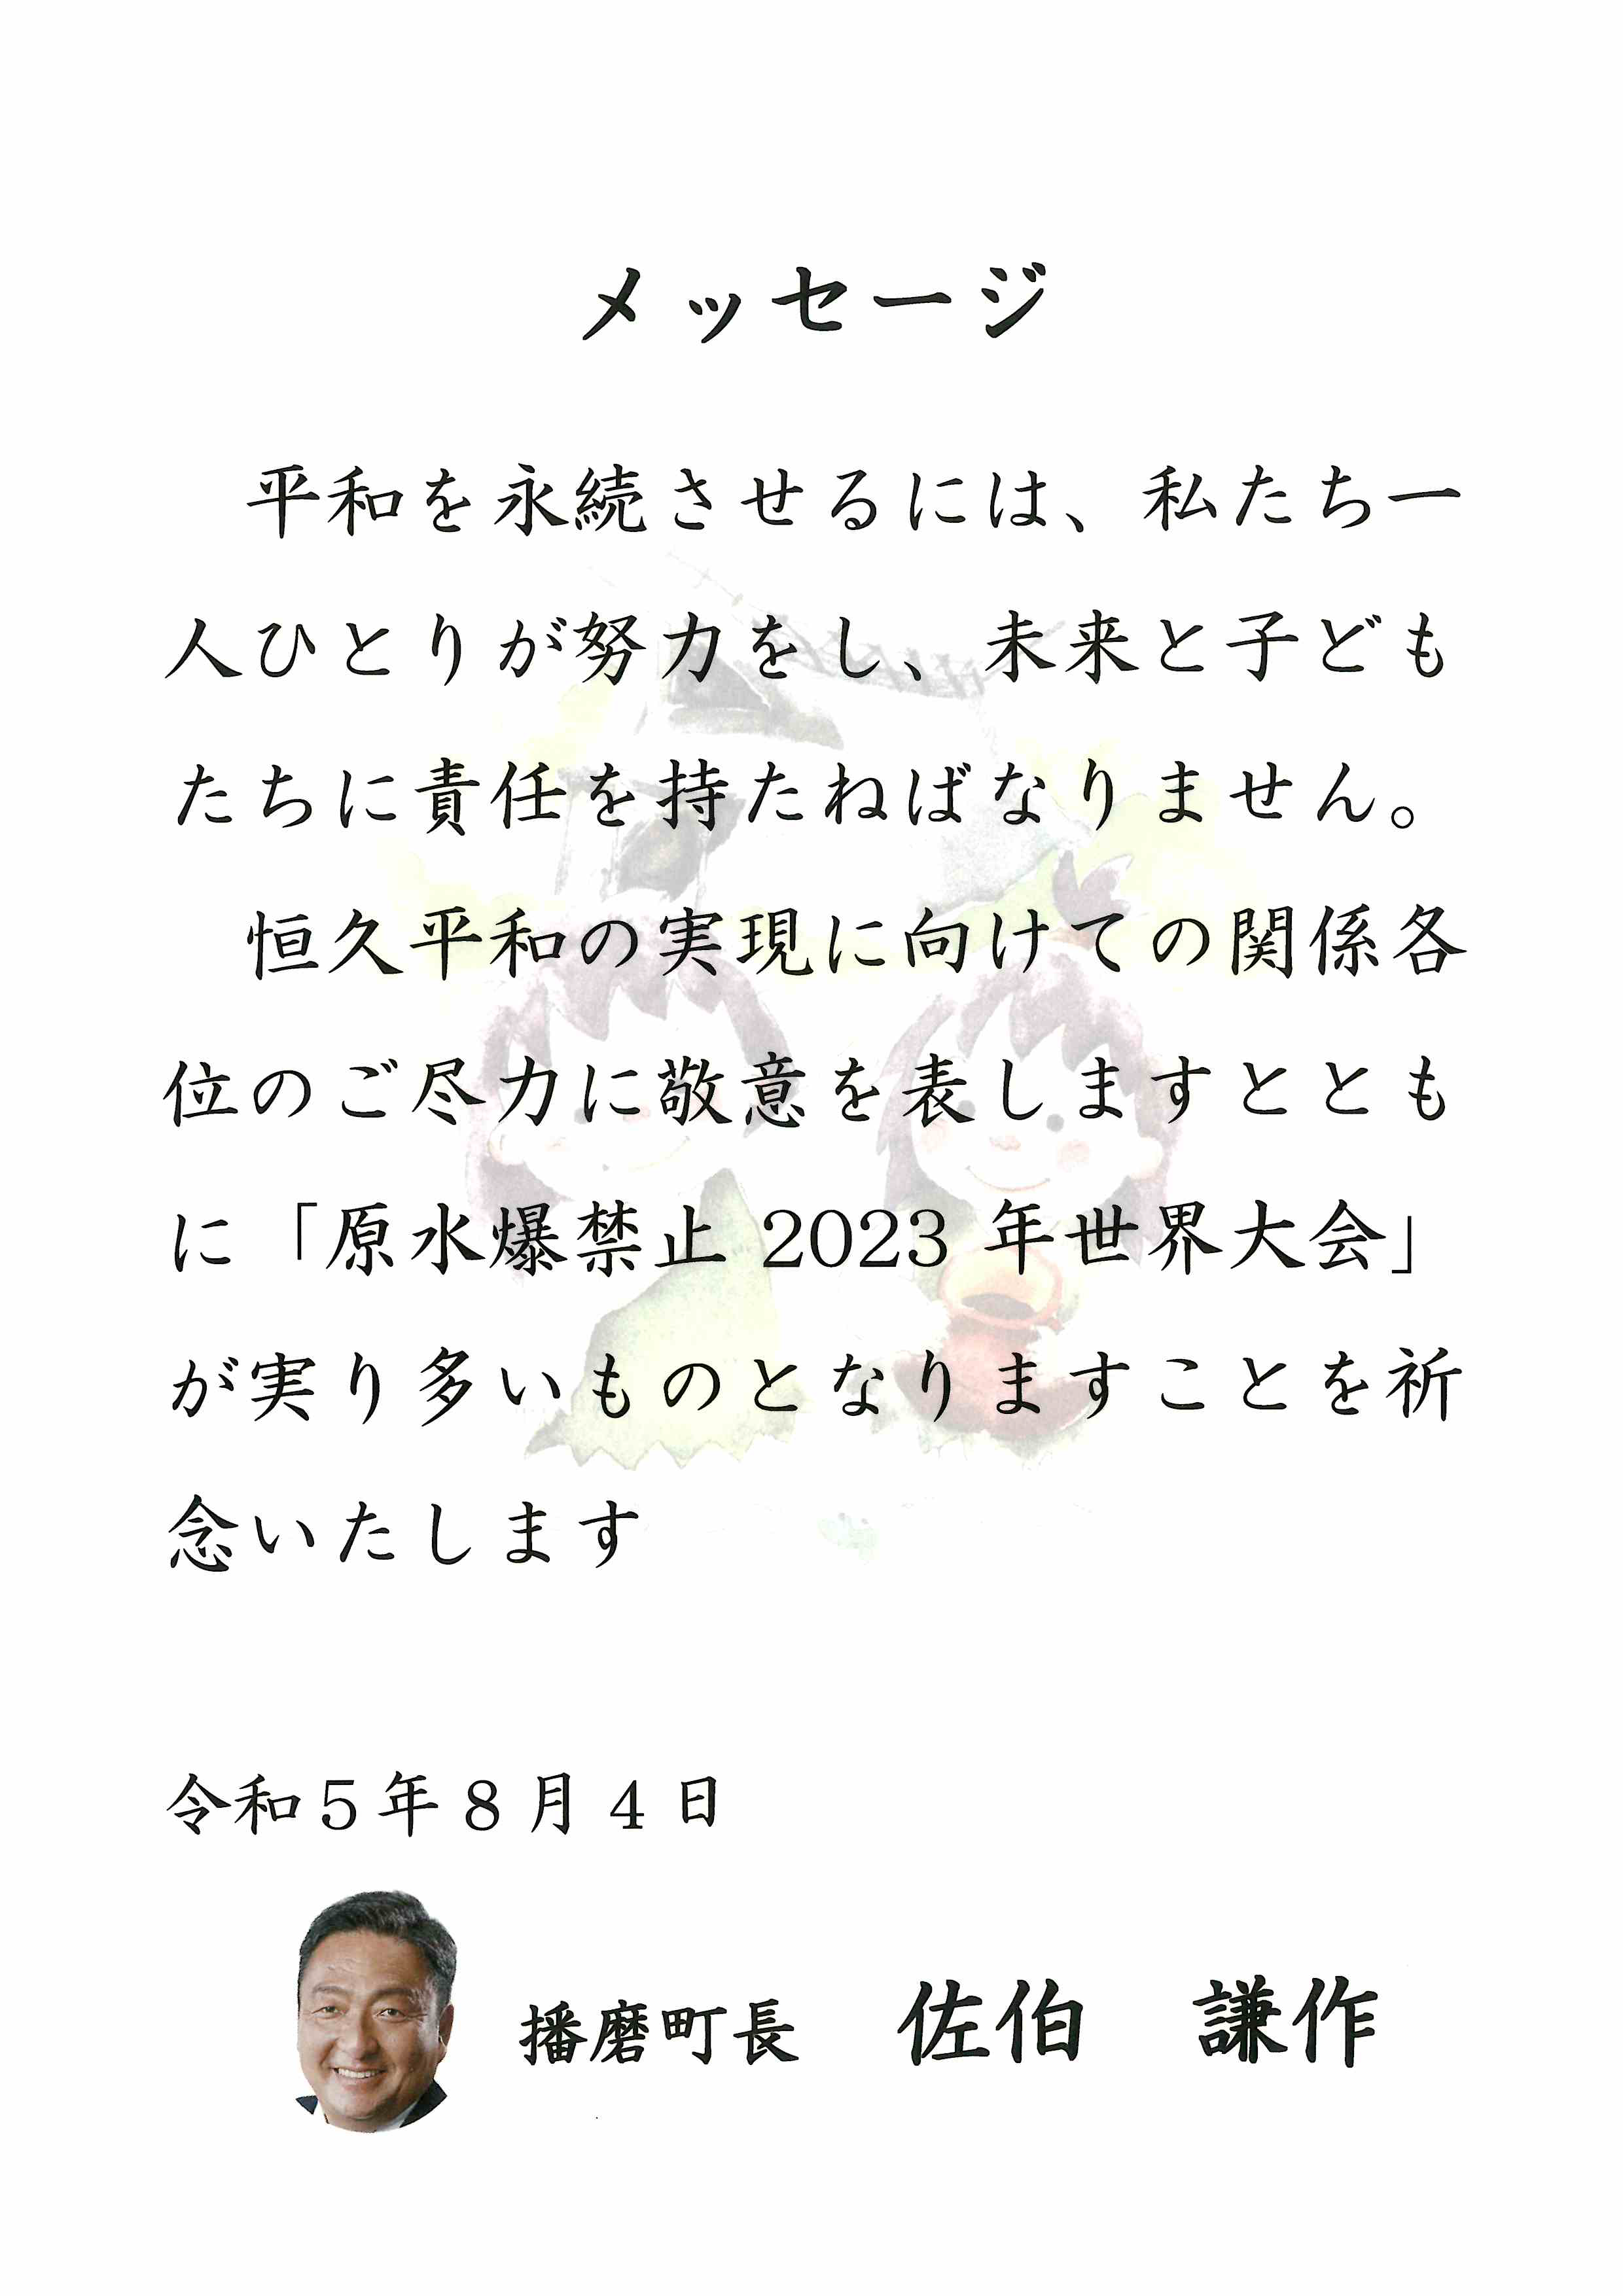 メッセージ
平和を永続させるには、私たち一
人ひとりが努力をし、未来と子ども
たちに責任を持たねばなりません。
恒久平和の実現に向けての関係各
位のご尽力に敬意を表しますととも
に「原水爆禁止 2023 年世界大会」
が実り多いものとなりますことを祈
念いたします
令和５年８月４日
播磨町長　佐伯　謙作